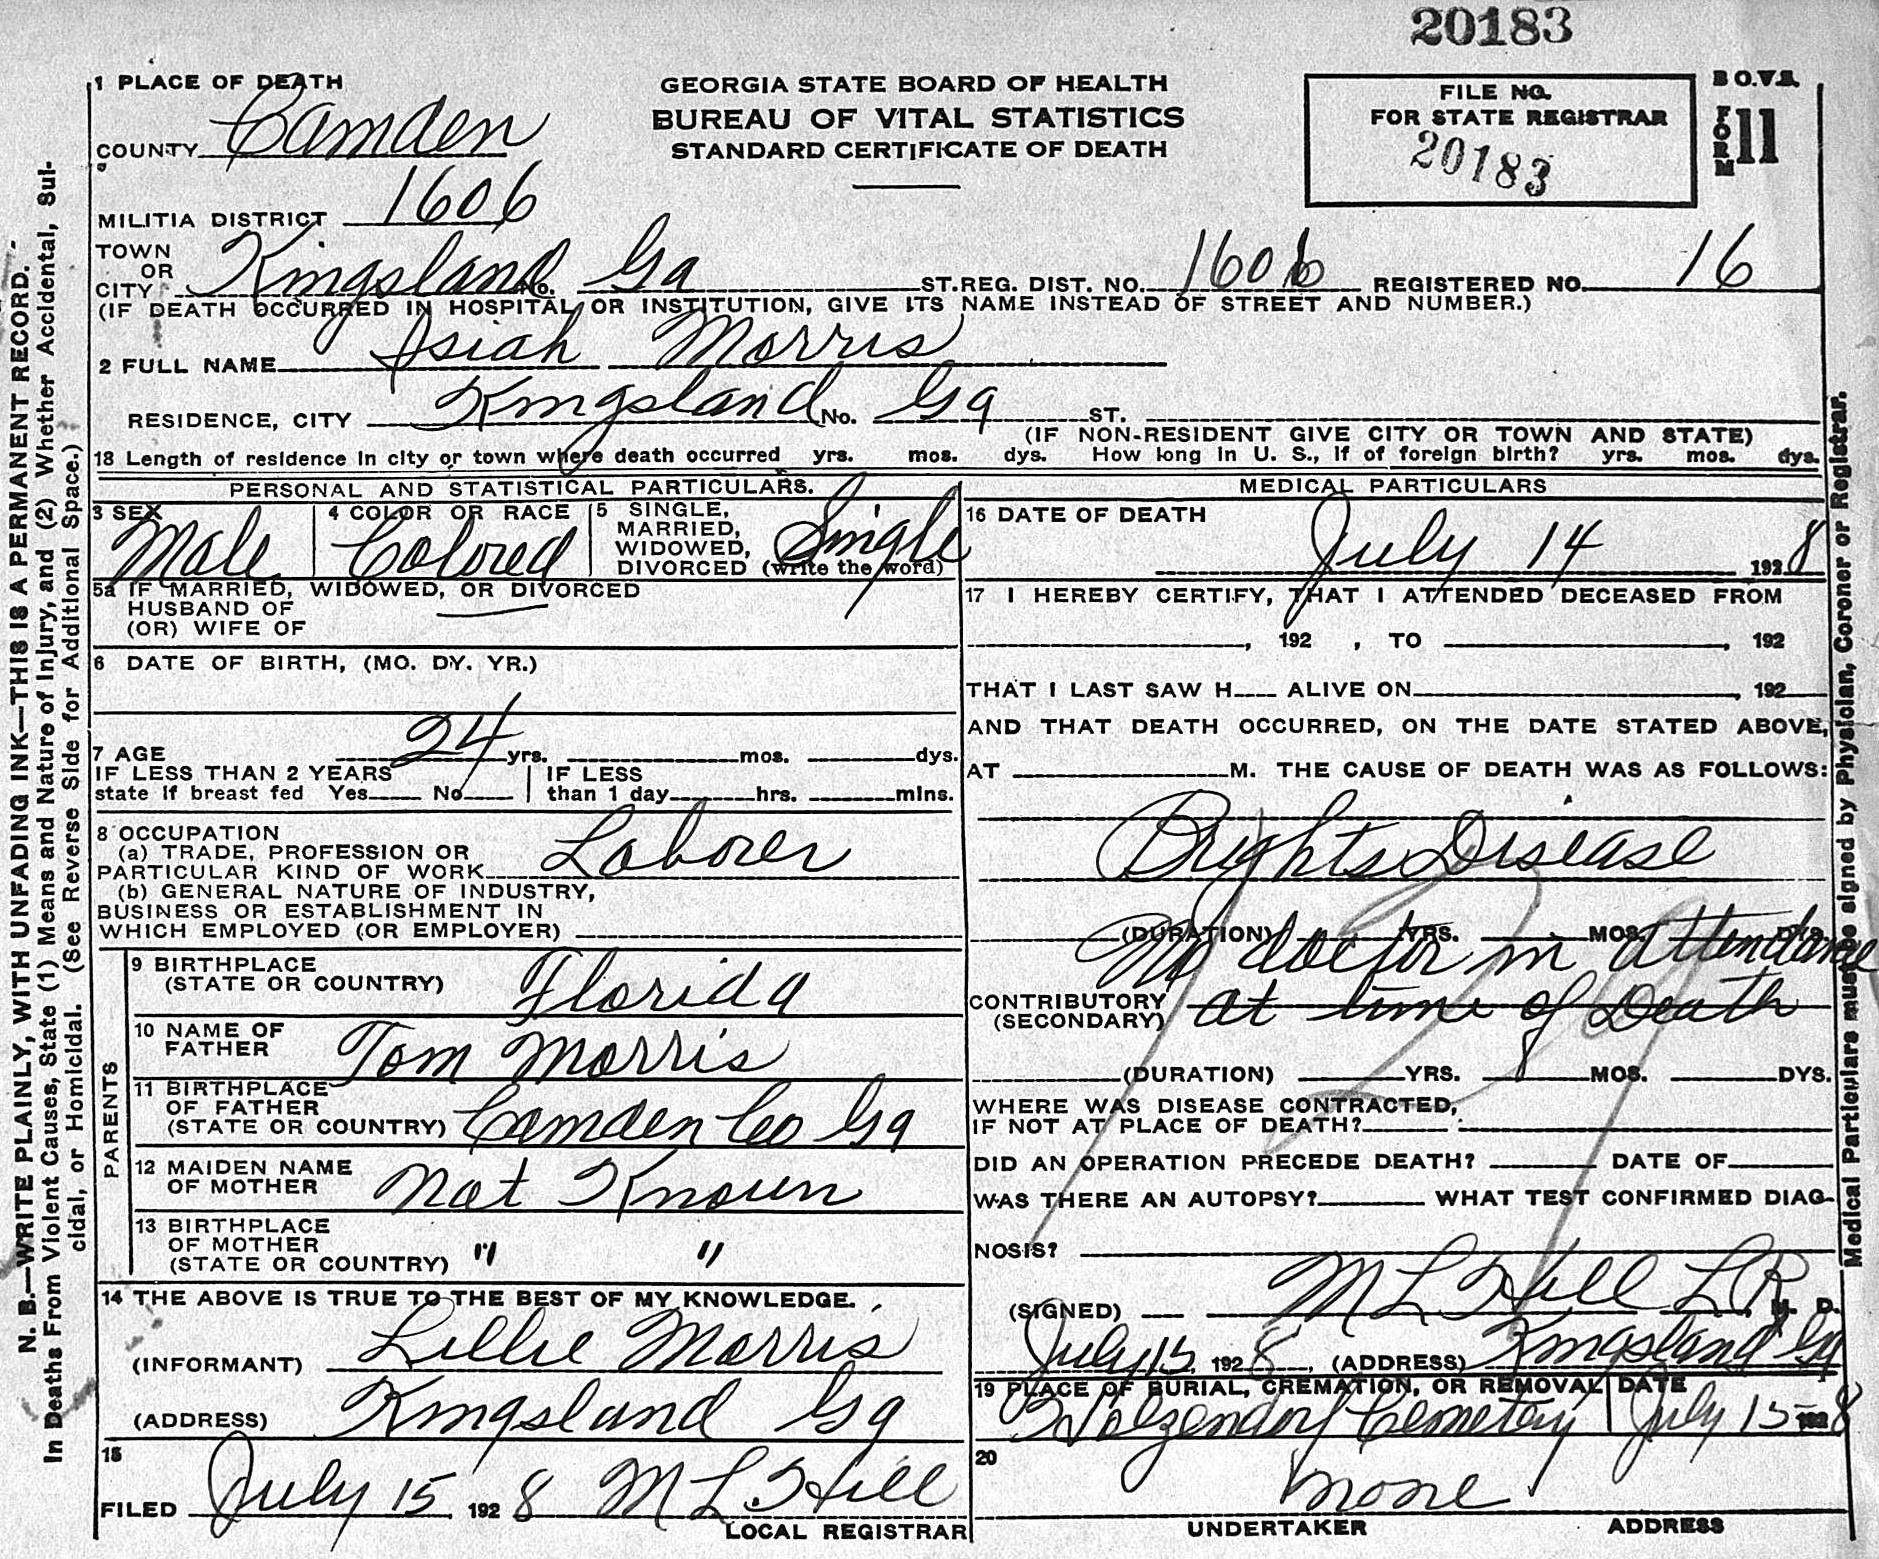 20183
1 PLACE OF DEATH
GEORGIA STATE BOARD OF HEALTH
BUREAU OF VITAL STATISTICS
STANDARD CERTIFICATE OF DEATH
FILE NO.
FOR STATE REGISTRAR
20183
B O.V.S.
FORM 11
COUNTY Camden
MILITIA DISTRICT 1606
TOWN OR CITY Kingsland No. Ga ST. REG. DIST. NO. 1606 REGISTERED NO. 16
(IF DEATH OCCURRED IN HOSPITAL OR INSTITUTION, GIVE ITS NAME INSTEAD OF STREET AND NUMBER.)
2 FULL NAME Isiah Morris
RESIDENCE, CITY Kingsland No. Ga ST.
(IF NON-RESIDENT GIVE CITY OR TOWN AND STATE)
18 Length of residence in city or town where death occurred yrs. mos. dys. How long in U. S., if of foreign birth? yrs. mos. dys.
PERSONAL AND STATISTICAL PARTICULARS.
3 SEX Male
4 COLOR OR RACE Colored
5 SINGLE, MARRIED, WIDOWED, DIVORCED (write the word) Single
5a IF MARRIED, WIDOWED, OR DIVORCED
HUSBAND OF
(OR) WIFE OF
6 DATE OF BIRTH, (MO. DY. YR.)
7 AGE 24 yrs. mos. dys.
IF LESS THAN 2 YEARS
state if breast fed Yes No
IF LESS
than 1 day hrs. mins.
8 OCCUPATION
(a) TRADE, PROFESSION OR
PARTICULAR KIND OF WORK Laborer
(b) GENERAL NATURE OF INDUSTRY,
BUSINESS OR ESTABLISHMENT IN
WHICH EMPLOYED (OR EMPLOYER)
9 BIRTHPLACE
(STATE OR COUNTRY) Florida
PARENTS
10 NAME OF
FATHER Tom Morris
11 BIRTHPLACE
OF FATHER
(STATE OR COUNTRY) Camden Co Ga
12 MAIDEN NAME
OF MOTHER Not Known
13 BIRTHPLACE
OF MOTHER
(STATE OR COUNTRY) " "
14 THE ABOVE IS TRUE TO THE BEST OF MY KNOWLEDGE.
(INFORMANT) Lillie Morris
(ADDRESS) Kingsland Ga
15
FILED July 15 1928 M L Hill
LOCAL REGISTRAR
MEDICAL PARTICULARS
16 DATE OF DEATH
July 14 1928
17 I HEREBY CERTIFY, THAT I ATTENDED DECEASED FROM
, 192 , TO , 192
THAT I LAST SAW H ALIVE ON , 192
AND THAT DEATH OCCURRED, ON THE DATE STATED ABOVE,
AT M. THE CAUSE OF DEATH WAS AS FOLLOWS:
Brights Disease
(DURATION) YRS. MOS. DYS.
No doctor in attendance
CONTRIBUTORY
(SECONDARY) at time of Death
(DURATION) YRS. 8 MOS. DYS.
WHERE WAS DISEASE CONTRACTED,
IF NOT AT PLACE OF DEATH?
DID AN OPERATION PRECEDE DEATH? DATE OF
WAS THERE AN AUTOPSY? WHAT TEST CONFIRMED DIAG-
NOSIS?
(SIGNED) M L Hill L R M. D.
July 15, 1928, (ADDRESS) Kingsland Ga
19 PLACE OF BURIAL, CREMATION, OR REMOVAL DATE
Holzendorf Cemetery July 15 1928
20
None
UNDERTAKER ADDRESS
N. B.—WRITE PLAINLY, WITH UNFADING INK—THIS IS A PERMANENT RECORD.
In Deaths From Violent Causes, State (1) Means and Nature of Injury, and (2) Whether Accidental, Sui-
cidal, or Homicidal. (See Reverse Side for Additional Space.)
Medical Particulars must be signed by Physician, Coroner or Registrar.